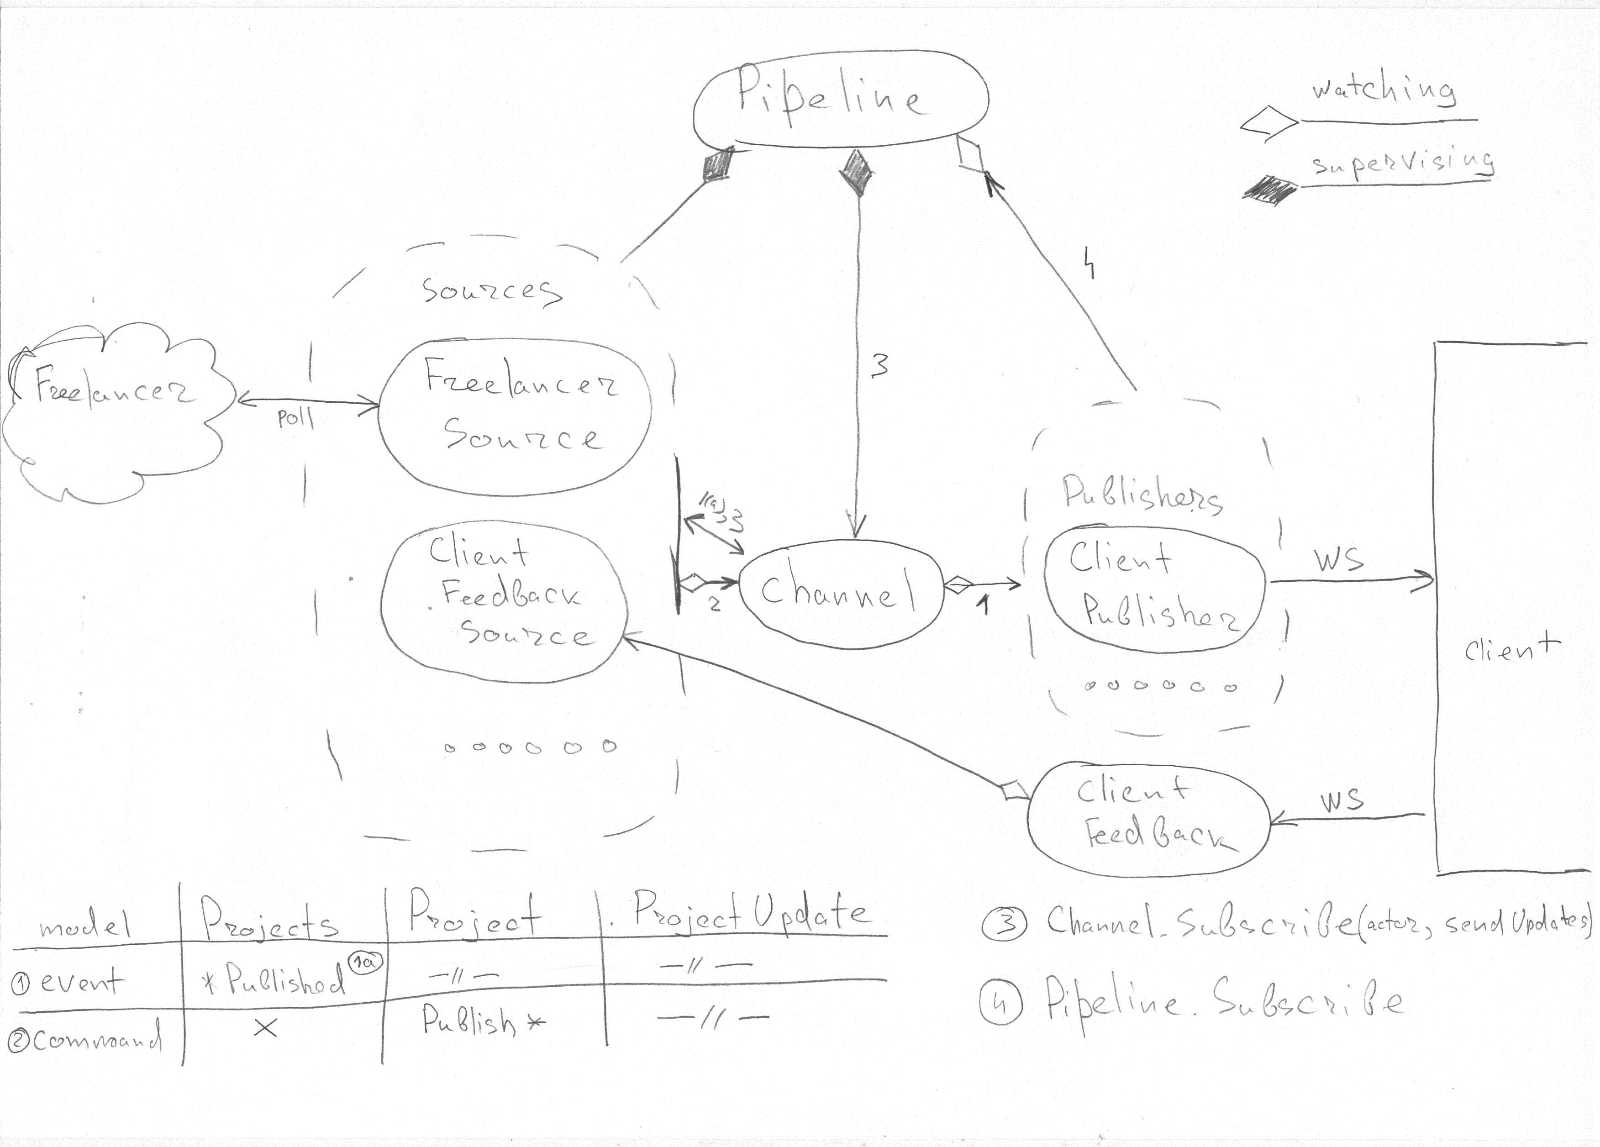 Pipeline
watching
supervising
4
sources
Freelancer
poll
Freelancer
Source
3
Publishers
Client
Feedback
Source
2
Channel
1
Client
Publisher
WS
Client
Client
Feedback
WS
model | Projects | Project | Project Update
① event | * Published 1a | -//- | -//-
② command | X | Publish * | -//-
③ Channel.Subscribe(actor, send Updates)
④ Pipeline.Subscribe